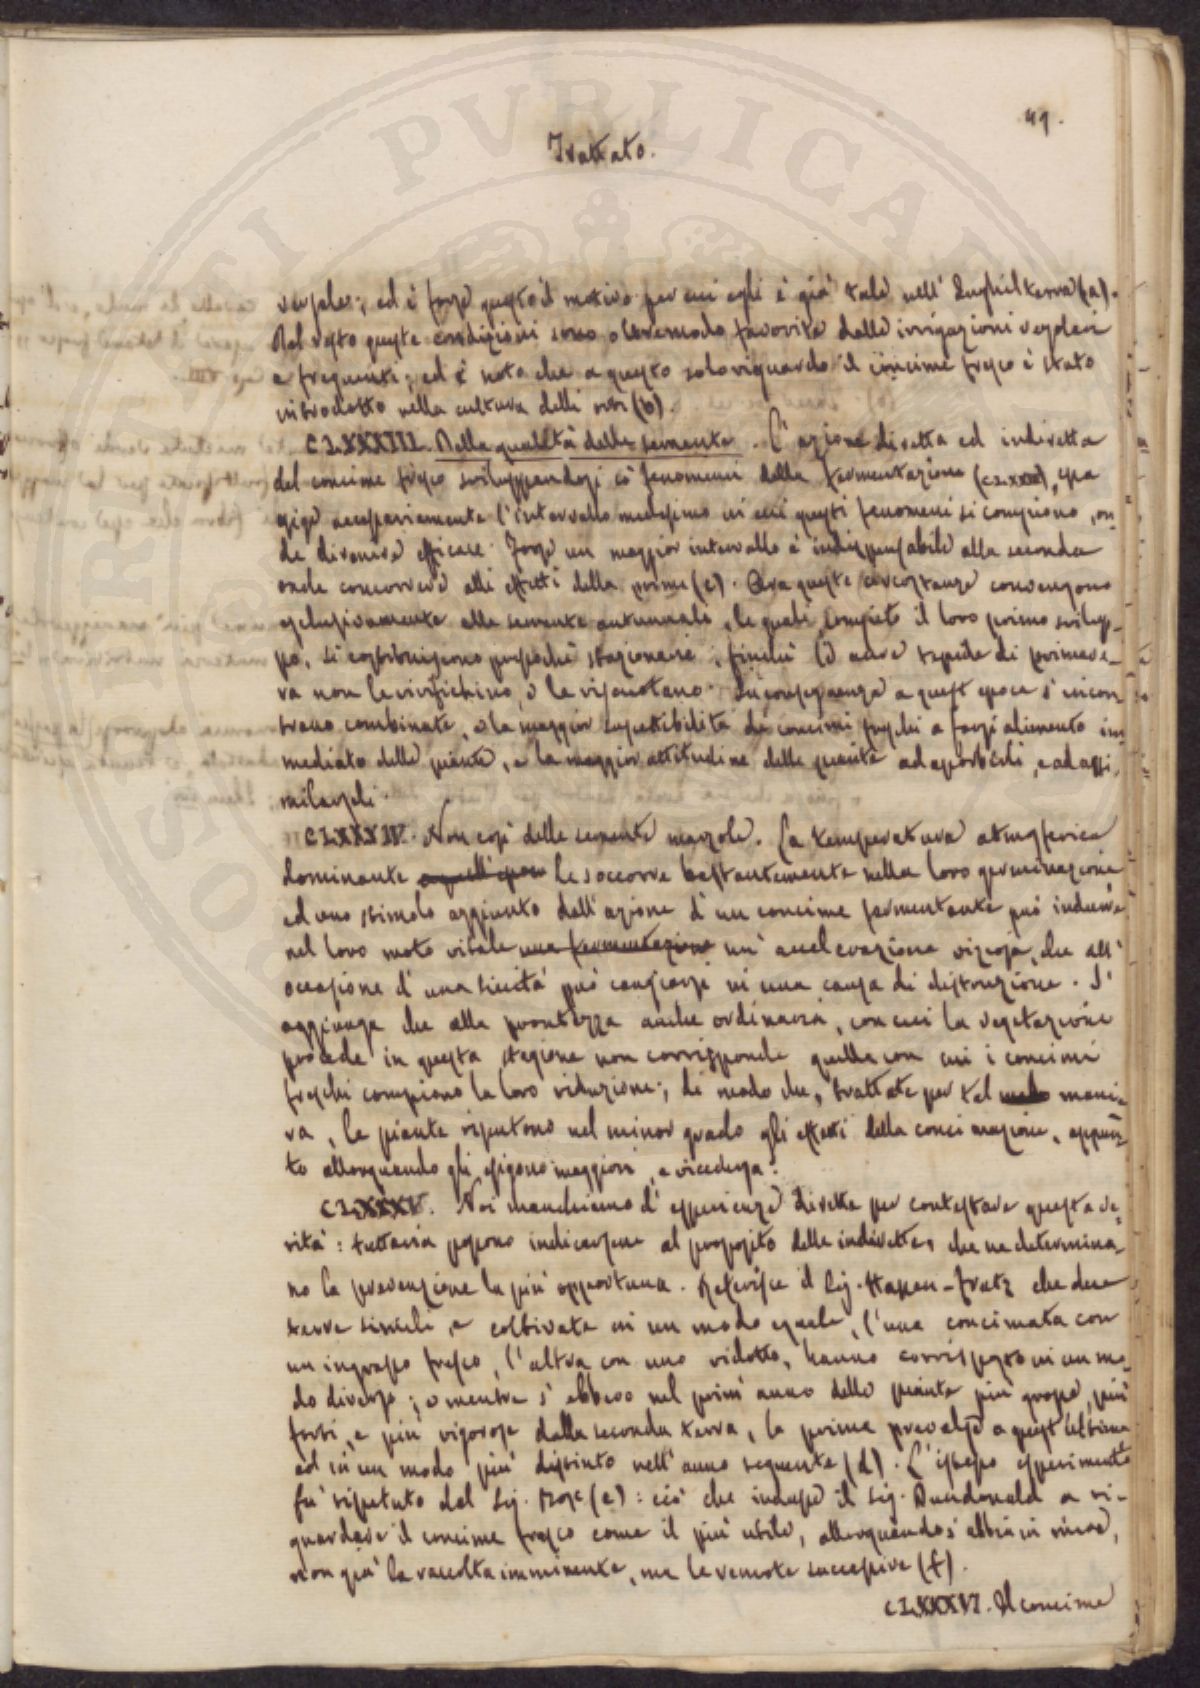 49.
Trattato.
versale; ed è forse questo il motivo per cui egli è già tale nell'Inghilterra (a).
Del resto queste condizioni sono oltremodo favorite dalle irrigazioni regolari
e frequenti; ed è noto che a questo solo riguardo il concime fresco è stato
introdotto nella cultura delli orti (b).
CLXXXIII. Della qualità delle semente. L'azione diretta ed indiretta
del concime fresco sviluppandosi co' fenomeni della fermentazione (CLXXX), esi
gige necessariamente l'intervallo medesimo in cui questi fenomeni si compiono, on
de divenire efficace. Forse un maggior intervallo è indispensabile alla seconda
onde concorrere alli effetti della prima (c). Ora queste circostanze convengono
esclusivamente alle semente autunnali, le quali, compito il loro primo svilup-
po, si costituiscono pressoché stazionarie, finché le aure tepide di primave-
ra non le vivifichino, e le riscuotano. In conseguenza a quest'epoca s'incon-
trano combinate, e la maggior suscettibilità de' concimi freschi a farsi alimento im-
mediato delle piante, e la maggior attitudine delle piante ad assorbirli, e ad assi-
milarseli.
CLXXXIV. Non così delle semente marzole. La temperatura atmosferica
dominante a quell'epoca le soccorre bastantemente nella loro germinazione
ed uno stimolo aggiunto dall'azione d'un concime fermentante può indurre
nel loro moto vitale una fermentazione un'accelerazione viziosa, che all'
occasione d'una siccità può cangiarsi in una causa di distruzione. S'
aggiunga che alla prontezza anche ordinaria, con cui la vegetazione
procede in questa stagione non corrisponde quella con cui i concimi
freschi compiono la loro riduzione; di modo che, trattate per tal manie-
ra, le piante risentono nel minor grado gli effetti della concimazione, appun-
to allorquando gli esigono maggiori, e viceversa.
CLXXXV. Noi manchiamo d'esperienze dirette per contestare questa ve-
rità: tuttavia possono indicarsene al proposito delle indirette, che ne determina-
no la prevenzione la più opportuna. Riferisce il Sig. Hassen-Fratz che due
terre simili, e coltivate in un modo eguale, l'una concimata con
un ingrasso fresco, l'altra con uno ridotto, hanno corrisposto in un mo
do diverso; e mentre s'ebbero nel prim'anno delle piante più grosse, più
forti, e più vigorose dalla seconda terra, la prima prevalse a quest'ultima
ed in un modo più distinto nell'anno seguente (d). L'istesso esperimento
fu ripetuto dal Sig. (e): ciò che indusse il Sig. Dundonald a ri-
guardare il concime fresco come il più utile, allorquando s'abbia in mira,
non già la raccolta imminente, ma le venute successive (f).
CLXXXVI. Il concime